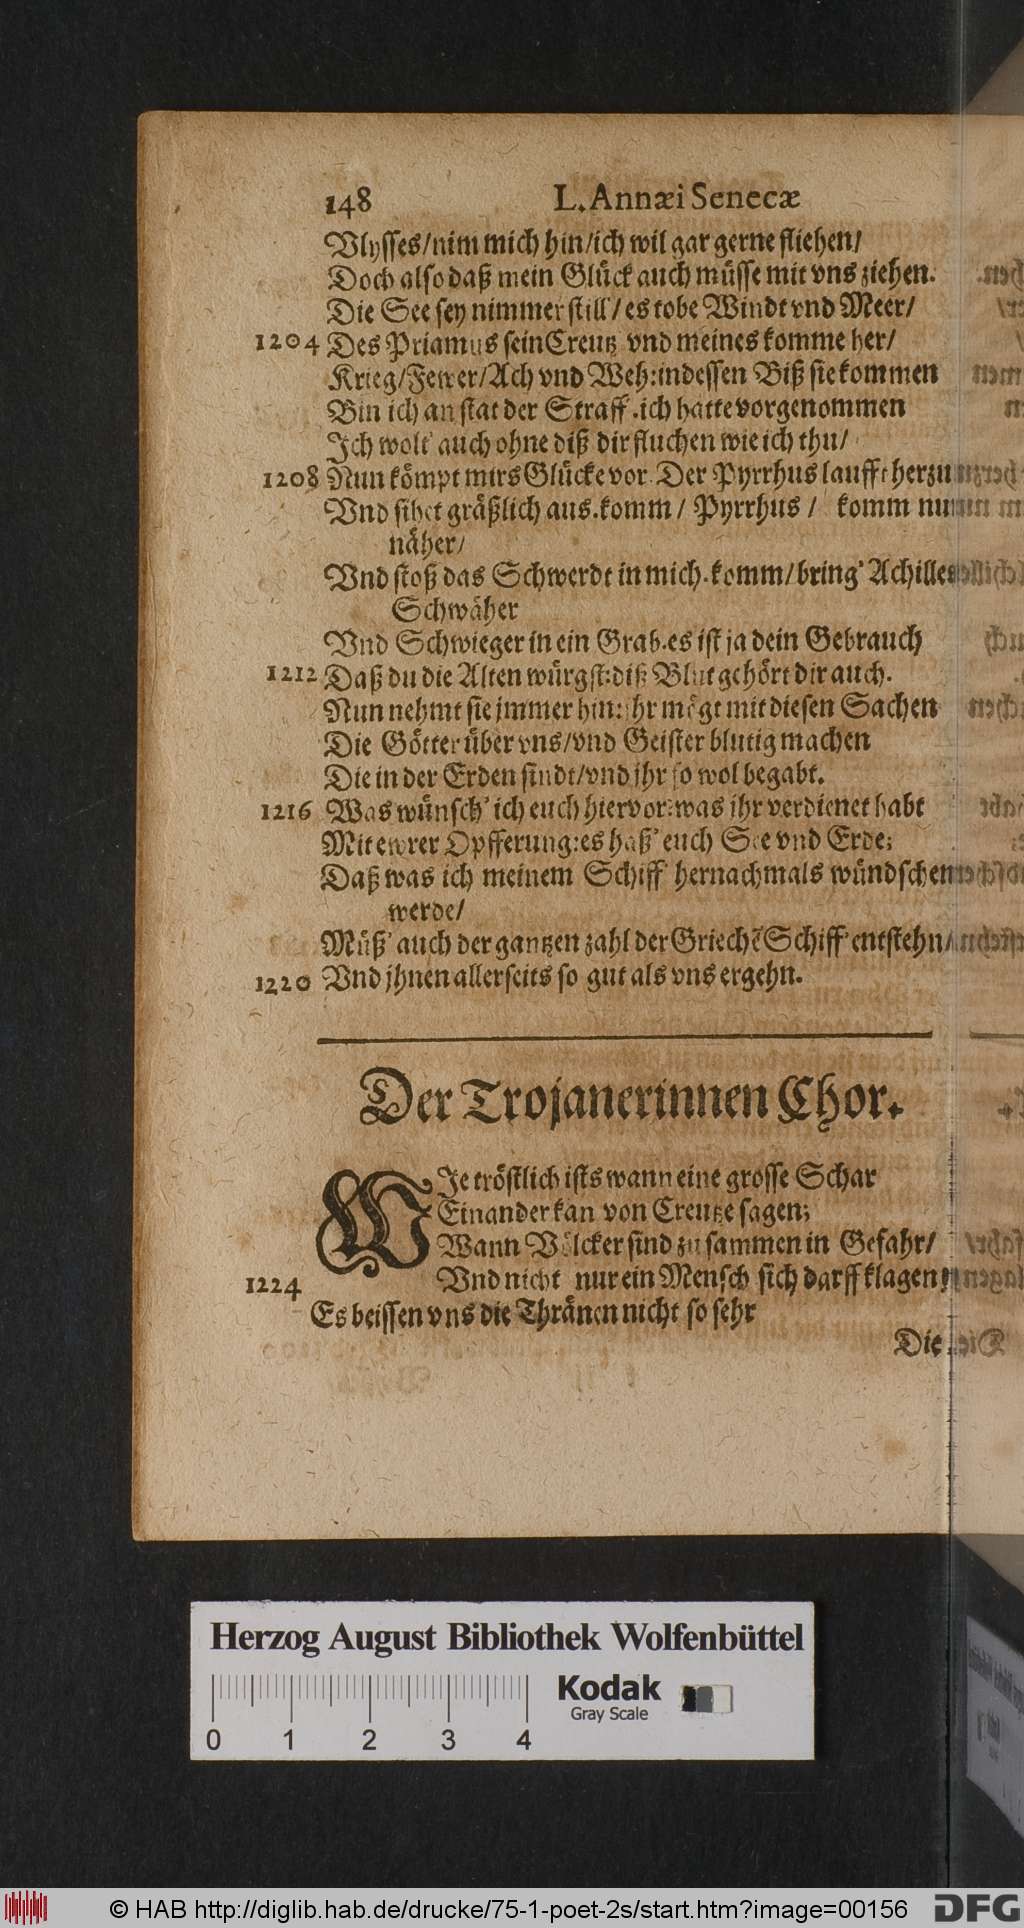 148 L. Annæi Senecæ
Vlysses/nim mich hin/ich wil gar gerne fliehen/
Doch also daß mein Glück auch müsse mit vns ziehen.
Die See sey nimmer still'/ es tobe Windt vnd Meer/
1204 Des Priamus sein Creutz vnd meines komme her/
Krieg/Fewer/Ach vnd Weh: indessen Biß sie kommen
Bin ich an stat der Straff'. ich hatte vorgenommen
Ich wolt' auch ohne diß dir fluchen wie ich thu/
1208 Nun kömpt mirs Glücke vor. Der Pyrrhus laufft herzu
Vnd sihet gräßlich aus. komm / Pyrrhus / komm nun
näher/
Vnd stoß das Schwerdt in mich. komm/bring' Achilles
Schwäher
Vnd Schwieger in ein Grab. es ist ja dein Gebrauch
1212 Daß du die Alten würgst: diß Blut gehört dir auch.
Nun nehmt sie jmmer hin: jhr mögt mit diesen Sachen
Die Götter über vns/vnd Geister blutig machen
Die in der Erden sindt/vnd jhr so wol begabt.
1216 Was wünsch' ich euch hiervor: was jhr verdienet habt
Mit ewrer Opfferung: es haß' euch See vnd Erde;
Daß was ich meinem Schiff' hernachmals wündschen
werde/
Müß' auch der gantzen zahl der Griechẽ Schiff' entstehn/
1220 Vnd jhnen allerseits so gut als vns ergehn.
Der Trojanerinnen Chor.
WIe tröstlich ists wann eine grosse Schar
Einander kan von Creutze sagen;
Wann Völcker sind zusammen in Gefahr/
1224 Vnd nicht nur ein Mensch sich darff klagen
Es beissen vns die Thränen nicht so sehr
Die
Herzog August Bibliothek Wolfenbüttel
Kodak
Gray Scale
0 1 2 3 4
© HAB http://diglib.hab.de/drucke/75-1-poet-2s/start.htm?image=00156 DFG